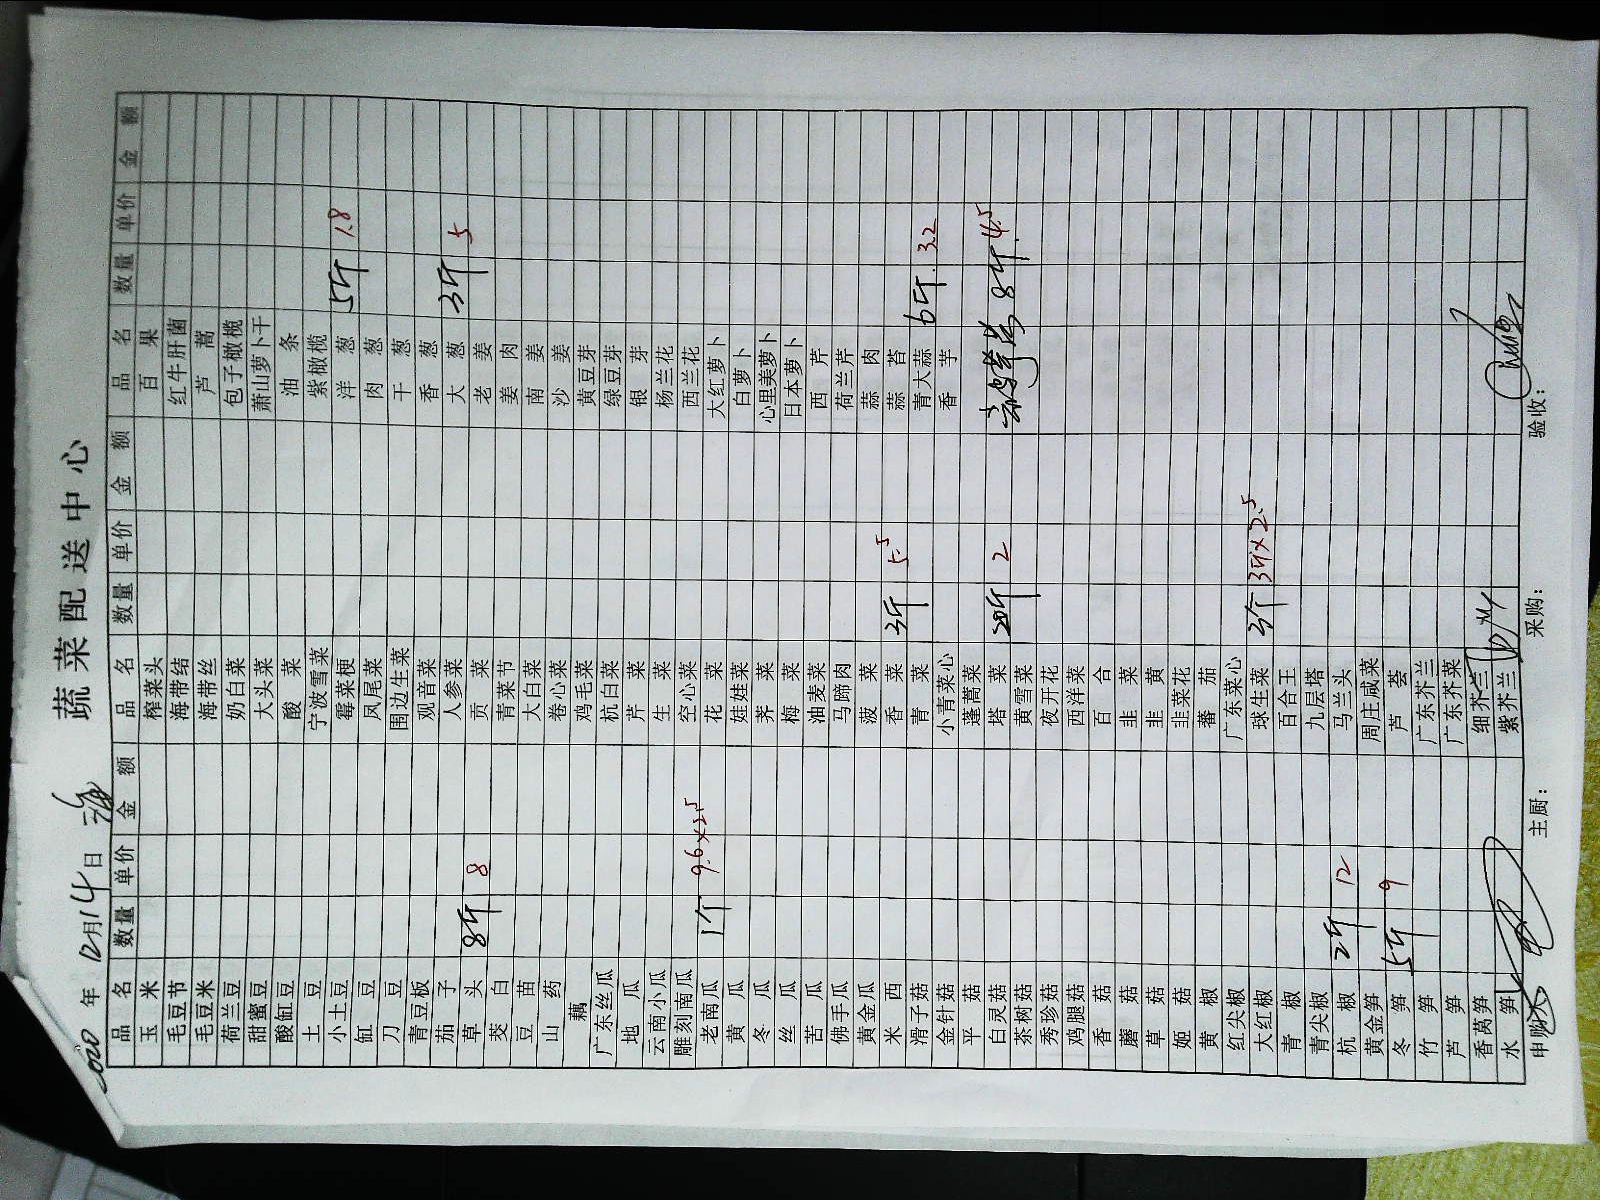 蔬菜配送中心
2020 年 12月14日
品名 数量 单价 金额 品名 数量 单价 金额 品名 数量 单价 金额
玉米 榨菜头 百果
毛豆节 海带结 红牛肝菌
毛豆米 海带丝 芦蒿
荷兰豆 奶白菜 包子橄榄
甜蜜豆 大头菜 萧山萝卜干
酸缸豆 酸菜 油条
土豆 宁波雪菜 紫橄榄
小土豆 霉菜梗 洋葱 5斤 1.8
缸豆 凤尾菜 肉葱
刀豆 围边生菜 干葱
青豆板 观音菜 香葱
茄子 人参菜 大葱 3斤 5
草头 8斤 8 贡菜 老姜
茭白 青菜节 姜肉
豆苗 大白菜 南姜
山药 卷心菜 沙姜
藕 鸡毛菜 黄豆芽
广东丝瓜 杭白菜 绿豆芽
地瓜 芹菜 银芽
云南小瓜 生菜 杨兰花
雕刻南瓜 空心菜 西兰花
老南瓜 1个 9.6×2.5 花菜 大红萝卜
黄瓜 娃娃菜 白萝卜
冬瓜 荠菜 心里美萝卜
丝瓜 梅菜 日本萝卜
苦瓜 油麦菜 西芹
佛手瓜 马蹄肉 荷兰芹
黄金瓜 菠菜 蒜肉
米西 香菜 3斤 5.5 蒜苔
滑子菇 青菜 青大蒜 6斤 3.2
金针菇 小青菜心 香芋
平菇 蓬蒿菜
白灵菇 塔菜 20斤 2 8斤 4.5
茶树菇 黄雪菜
秀珍菇 夜开花
鸡腿菇 西洋菜
香菇 百合
蘑菇 韭菜
草菇 韭黄
姬菇 韭菜花
黄椒 蕃茄
红尖椒 广东菜心
大红椒 球生菜 3个 3斤×2.5
青椒 百合王
青尖椒 九层塔
杭椒 2斤 12 马兰头
黄金笋 周庄咸菜
冬笋 5斤 9 芦荟
竹笋 广东芥兰
芦笋 广东芥菜
香莴笋 细芥兰
水笋 紫芥兰
主厨： 采购： 验收：